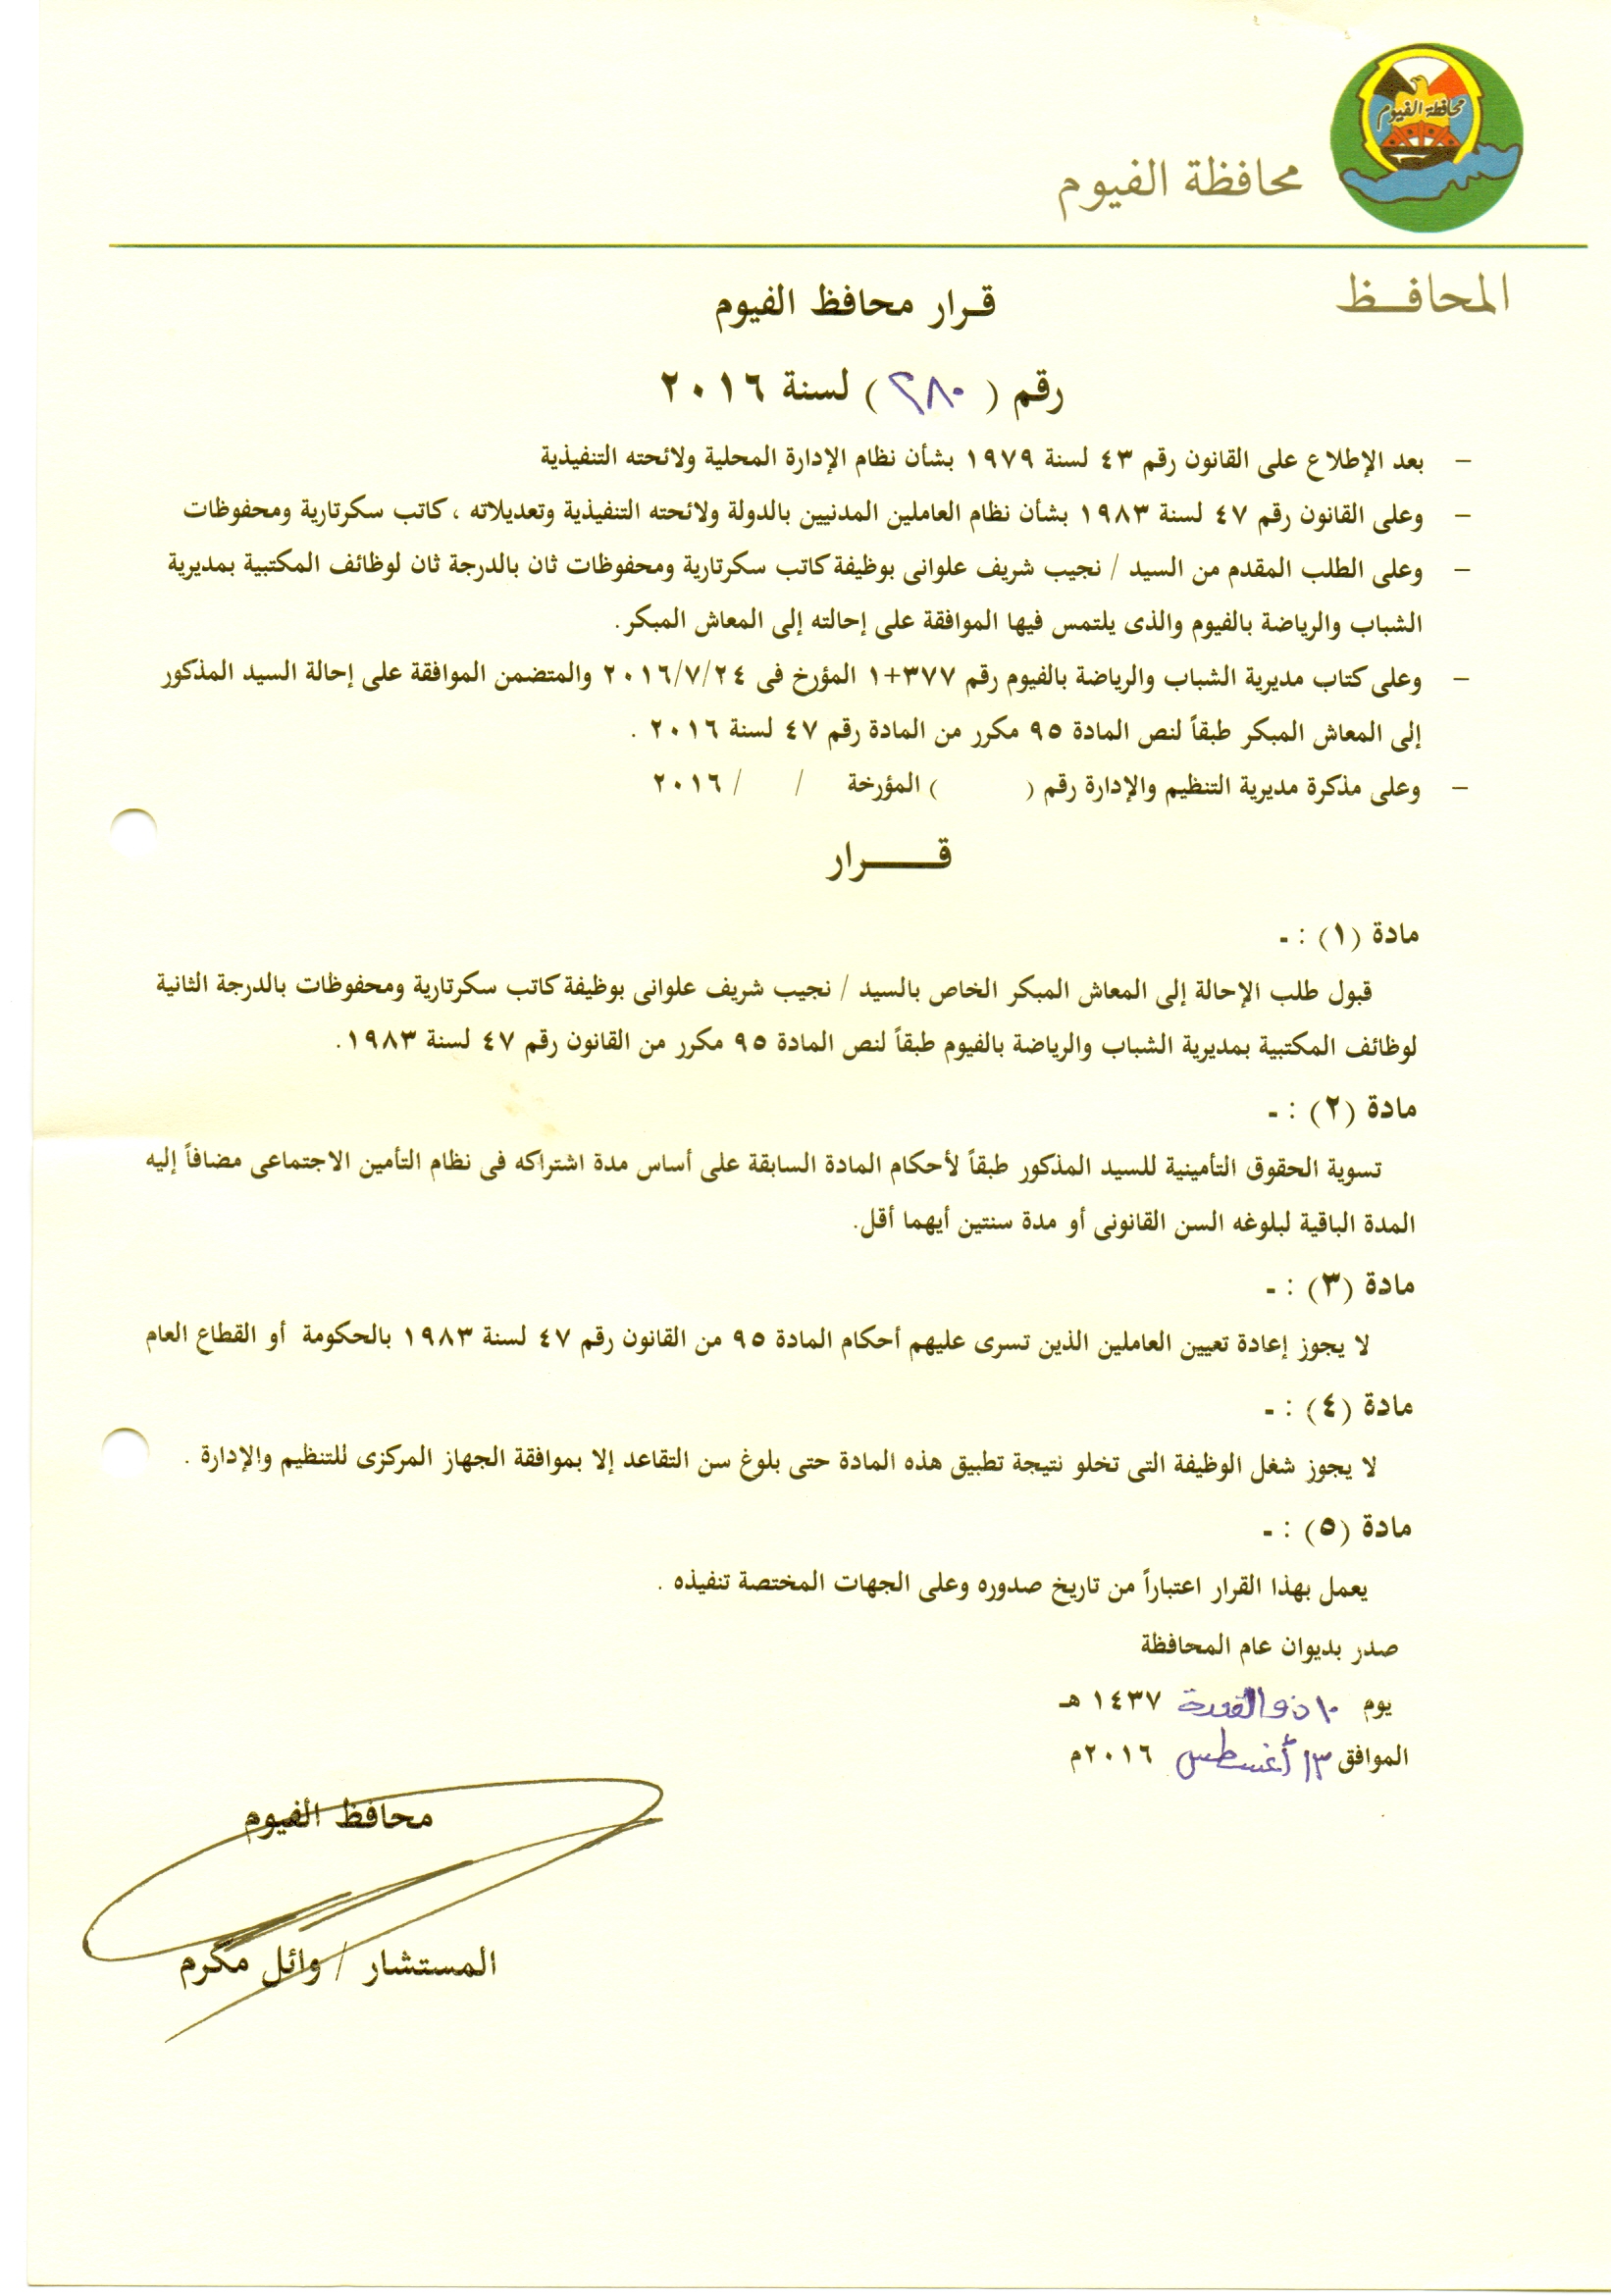 محافظة الفيوم
محافظة الفيوم
المحافـــظ
قـرار محافظ الفيوم
رقم ( ٢٨٠ ) لسنة ٢٠١٦
– بعد الإطلاع على القانون رقم ٤٣ لسنة ١٩٧٩ بشأن نظام الإدارة المحلية ولائحته التنفيذية
– وعلى القانون رقم ٤٧ لسنة ١٩٨٣ بشأن نظام العاملين المدنيين بالدولة ولائحته التنفيذية وتعديلاته ، كاتب سكرتارية ومحفوظات
– وعلى الطلب المقدم من السيد / نجيب شريف علوانى بوظيفة كاتب سكرتارية ومحفوظات ثان بالدرجة ثان لوظائف المكتبية بمديرية
الشباب والرياضة بالفيوم والذى يلتمس فيها الموافقة على إحالته إلى المعاش المبكر.
– وعلى كتاب مديرية الشباب والرياضة بالفيوم رقم ٣٧٧+١ المؤرخ فى ٢٠١٦/٧/٢٤ والمتضمن الموافقة على إحالة السيد المذكور
إلى المعاش المبكر طبقاً لنص المادة ٩٥ مكرر من المادة رقم ٤٧ لسنة ٢٠١٦ .
– وعلى مذكرة مديرية التنظيم والإدارة رقم ( ) المؤرخة / / ٢٠١٦
قــــــرار
مادة (١) : -
قبول طلب الإحالة إلى المعاش المبكر الخاص بالسيد / نجيب شريف علوانى بوظيفة كاتب سكرتارية ومحفوظات بالدرجة الثانية
لوظائف المكتبية بمديرية الشباب والرياضة بالفيوم طبقاً لنص المادة ٩٥ مكرر من القانون رقم ٤٧ لسنة ١٩٨٣.
مادة (٢) : -
تسوية الحقوق التأمينية للسيد المذكور طبقاً لأحكام المادة السابقة على أساس مدة اشتراكه فى نظام التأمين الاجتماعى مضافاً إليه
المدة الباقية لبلوغه السن القانونى أو مدة سنتين أيهما أقل.
مادة (٣) : -
لا يجوز إعادة تعيين العاملين الذين تسرى عليهم أحكام المادة ٩٥ من القانون رقم ٤٧ لسنة ١٩٨٣ بالحكومة أو القطاع العام
مادة (٤) : -
لا يجوز شغل الوظيفة التى تخلو نتيجة تطبيق هذه المادة حتى بلوغ سن التقاعد إلا بموافقة الجهاز المركزى للتنظيم والإدارة .
مادة (٥) : -
يعمل بهذا القرار اعتباراً من تاريخ صدوره وعلى الجهات المختصة تنفيذه .
صدر بديوان عام المحافظة
يوم ١٠ ذو القعدة ١٤٣٧ هـ
الموافق ١٣ أغسطس ٢٠١٦م
محافظ الفيوم
المستشار / وائل مكرم